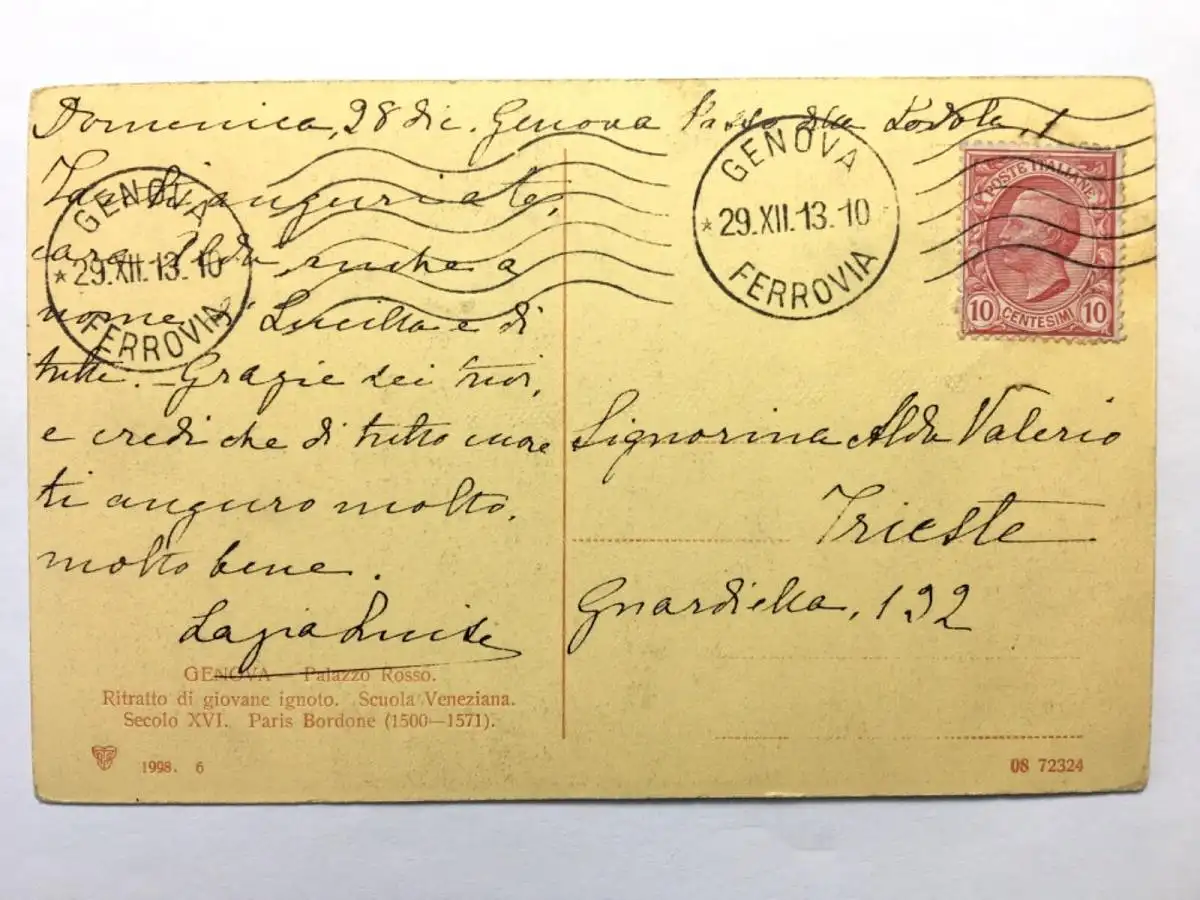 Domenica, 28 dic. Genova Passo della Lodola, 1
Tanti auguri a te,
cara Alda anche a
nome di Lucilla e di
tutti. - Grazie dei tuoi,
e credi che di tutto cuore
ti auguro molto,
molto bene.
La zia Luisa
GENOVA
* 29.XII.13.10
FERROVIA
GENOVA
* 29.XII.13.10
FERROVIA
POSTE ITALIANE
10 CENTESIMI 10
Signorina Alda Valerio
Trieste
Guardiella, 192
GENOVA Palazzo Rosso.
Ritratto di giovane ignoto. Scuola Veneziana.
Secolo XVI. Paris Bordone (1500—1571).
1998. 6
08 72324